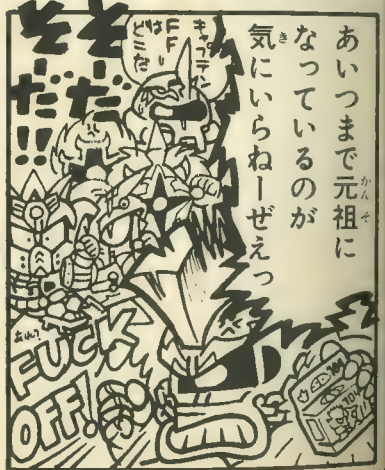 あいつまで元祖に
かんそ
なっているのが
気にいらねーぜえっ
き
キャプテン
FF
は
どこだ
そーだ
そーだ!!
あれ?
FUCK
OFF!